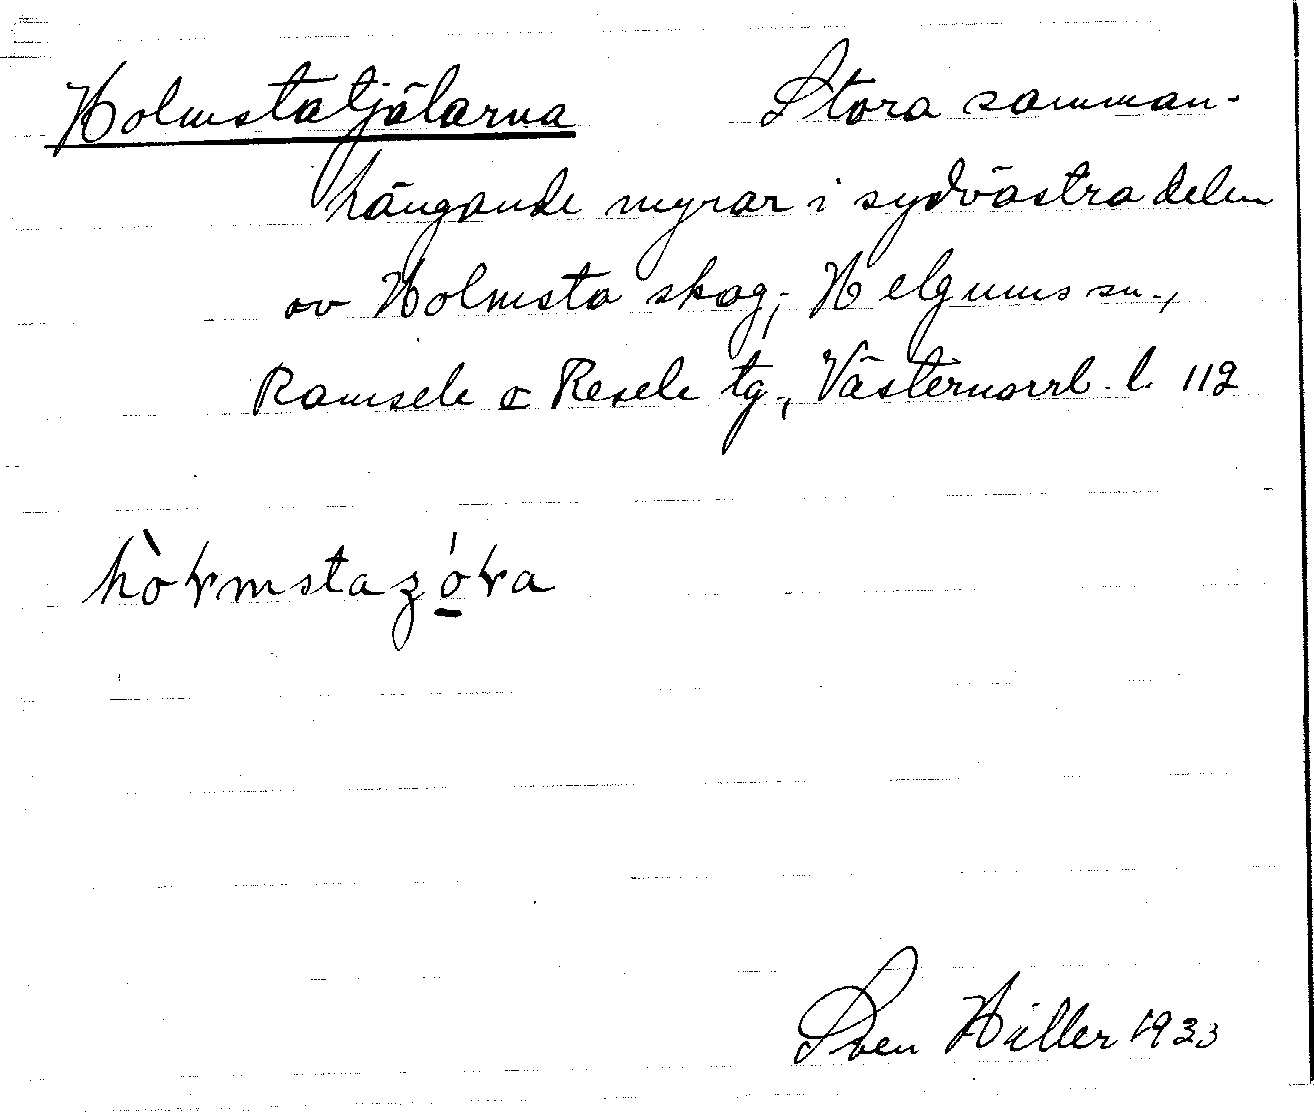 Holmstatjälarna Stora samman-
hängande myrar i sydvästra delen
av Holmsta skog; Helgums sn.,
Ramsele o Resele tg, Västernorrl. l. 112
Sven Hiller 1933